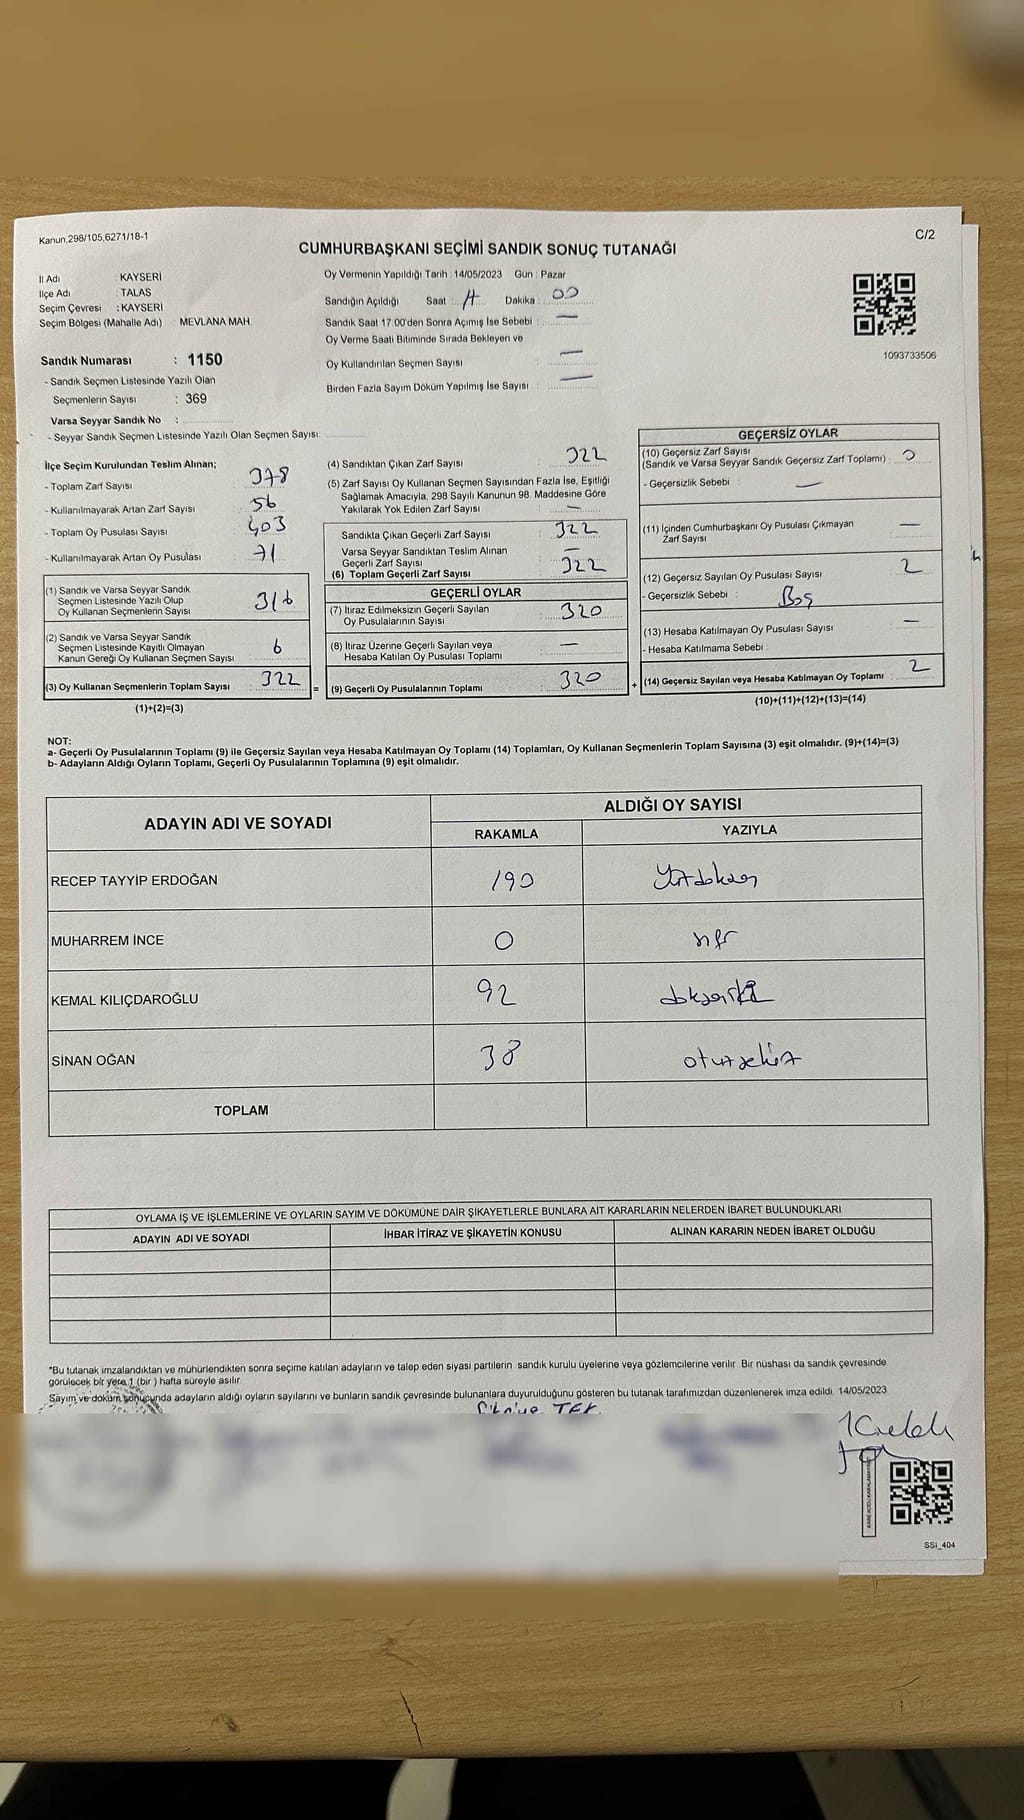 Kanun,298/105,6271/18-1
C/2
CUMHURBAŞKANI SEÇİMİ SANDIK SONUÇ TUTANAĞI
İl Adı : KAYSERİ
İlçe Adı : TALAS
Seçim Çevresi : KAYSERİ
Seçim Bölgesi (Mahalle Adı) : MEVLANA MAH.
Sandık Numarası : 1150
- Sandık Seçmen Listesinde Yazılı Olan
Seçmenlerin Sayısı : 369
Varsa Seyyar Sandık No :
- Seyyar Sandık Seçmen Listesinde Yazılı Olan Seçmen Sayısı:
Oy Vermenin Yapıldığı Tarih : 14/05/2023 Gün : Pazar
Sandığın Açıldığı Saat : Dakika : 00
Sandık Saat 17:00'den Sonra Açımış İse Sebebi : —
Oy Verme Saati Bitiminde Sırada Bekleyen ve
Oy Kullandırılan Seçmen Sayısı : —
Birden Fazla Sayım Döküm Yapılmış İse Sayısı : —
1093733506
İlçe Seçim Kurulundan Teslim Alınan;
- Toplam Zarf Sayısı : 378
- Kullanılmayarak Artan Zarf Sayısı : 56
- Toplam Oy Pusulası Sayısı : 403
- Kullanılmayarak Artan Oy Pusulası : 71
(1) Sandık ve Varsa Seyyar Sandık
Seçmen Listesinde Yazılı Olup
Oy Kullanan Seçmenlerin Sayısı : 316
(2) Sandık ve Varsa Seyyar Sandık
Seçmen Listesinde Kayıtlı Olmayan
Kanun Gereği Oy Kullanan Seçmen Sayısı : 6
(3) Oy Kullanan Seçmenlerin Toplam Sayısı : 322
(1)+(2)=(3)
(4) Sandıktan Çıkan Zarf Sayısı : 322
(5) Zarf Sayısı Oy Kullanan Seçmen Sayısından Fazla İse, Eşitliği
Sağlamak Amacıyla, 298 Sayılı Kanunun 98. Maddesine Göre
Yakılarak Yok Edilen Zarf Sayısı : —
Sandıkta Çıkan Geçerli Zarf Sayısı : 322
Varsa Seyyar Sandıktan Teslim Alınan
Geçerli Zarf Sayısı : —
(6) Toplam Geçerli Zarf Sayısı : 322
GEÇERLİ OYLAR
(7) İtiraz Edilmeksizin Geçerli Sayılan
Oy Pusulalarının Sayısı : 320
(8) İtiraz Üzerine Geçerli Sayılan veya
Hesaba Katılan Oy Pusulası Toplamı : —
= (9) Geçerli Oy Pusulalarının Toplamı : 320
GEÇERSİZ OYLAR
(10) Geçersiz Zarf Sayısı
(Sandık ve Varsa Seyyar Sandık Geçersiz Zarf Toplamı) : 0
- Geçersizlik Sebebi : —
(11) İçinden Cumhurbaşkanı Oy Pusulası Çıkmayan
Zarf Sayısı : —
(12) Geçersiz Sayılan Oy Pusulası Sayısı : 2
- Geçersizlik Sebebi : Boş
(13) Hesaba Katılmayan Oy Pusulası Sayısı : —
- Hesaba Katılmama Sebebi :
+ (14) Geçersiz Sayılan veya Hesaba Katılmayan Oy Toplamı : 2
(10)+(11)+(12)+(13)=(14)
NOT:
a- Geçerli Oy Pusulalarının Toplamı (9) ile Geçersiz Sayılan veya Hesaba Katılmayan Oy Toplamı (14) Toplamları, Oy Kullanan Seçmenlerin Toplam Sayısına (3) eşit olmalıdır. (9)+(14)=(3)
b- Adayların Aldığı Oyların Toplamı, Geçerli Oy Pusulalarının Toplamına (9) eşit olmalıdır.
ADAYIN ADI VE SOYADI
ALDIĞI OY SAYISI
RAKAMLA YAZIYLA
RECEP TAYYİP ERDOĞAN 190 Yüzdoksan
MUHARREM İNCE 0 sıfır
KEMAL KILIÇDAROĞLU 92 doksaniki
SİNAN OĞAN 38 otuzsekiz
TOPLAM
OYLAMA İŞ VE İŞLEMLERİNE VE OYLARIN SAYIM VE DÖKÜMÜNE DAİR ŞİKAYETLERLE BUNLARA AİT KARARLARIN NELERDEN İBARET BULUNDUKLARI
ADAYIN ADI VE SOYADI İHBAR İTİRAZ VE ŞİKAYETİN KONUSU ALINAN KARARIN NEDEN İBARET OLDUĞU
*Bu tutanak imzalandıktan ve mühürlendikten sonra seçime katılan adayların ve talep eden siyasi partilerin sandık kurulu üyelerine veya gözlemcilerine verilir. Bir nüshası da sandık çevresinde
görülecek bir yere 1 (bir ) hafta süreyle asılır.
Sayım ve döküm sonucunda adayların aldığı oyların sayılarını ve bunların sandık çevresinde bulunanlara duyurulduğunu gösteren bu tutanak tarafımızdan düzenlenerek imza edildi. 14/05/2023
TEK
SSİ_404